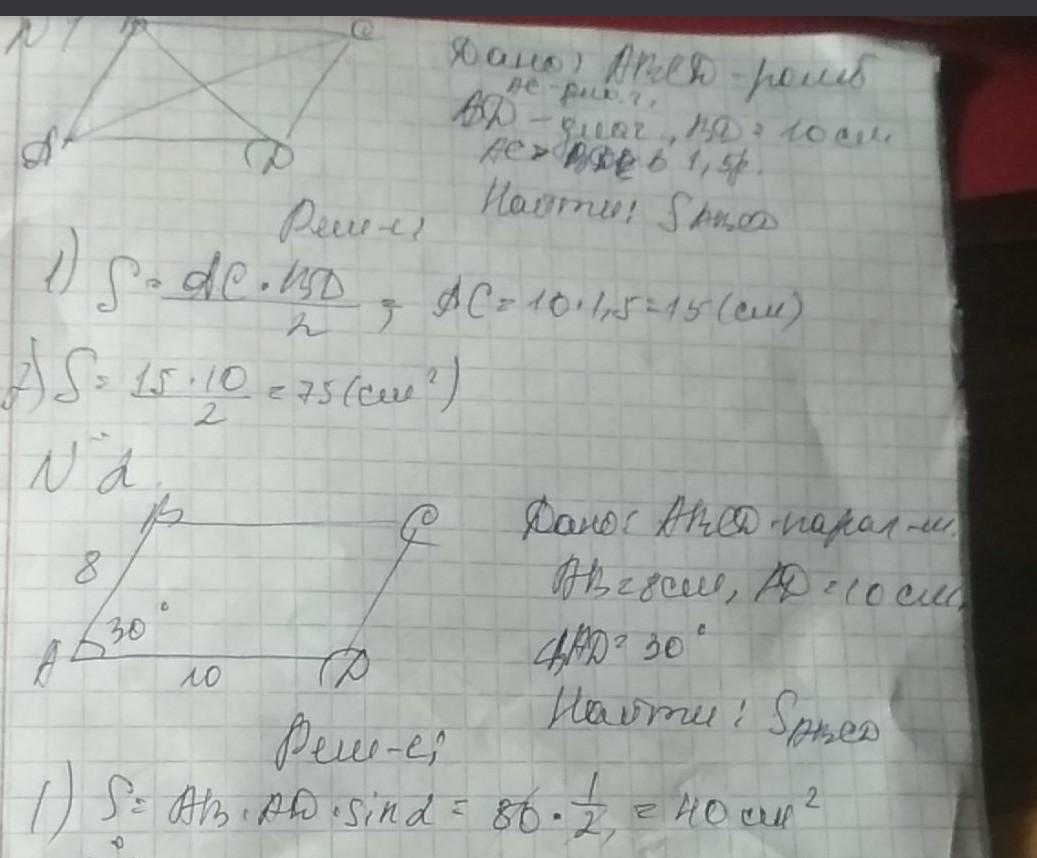 N 1 B C
Дано: ABCD - ромб
AC - диаг.
BD - диаг., BD = 10 см.
A D
AC > BD в 1,5р.
Найти: SABCD
Реш-е:
1) S = AC · BD / 2 ; AC = 10 · 1,5 = 15 (см)
2) S = 15 · 10 / 2 = 75 (см²)
N 2.
B C
Дано: ABCD - парал-м.
8
AB = 8 см, AD = 10 см,
30°
A 10 D
∠BAD = 30°
Найти: SABCD
Реш-е:
1) S = AB · AD · sin α = 80 · 1/2 = 40 см²